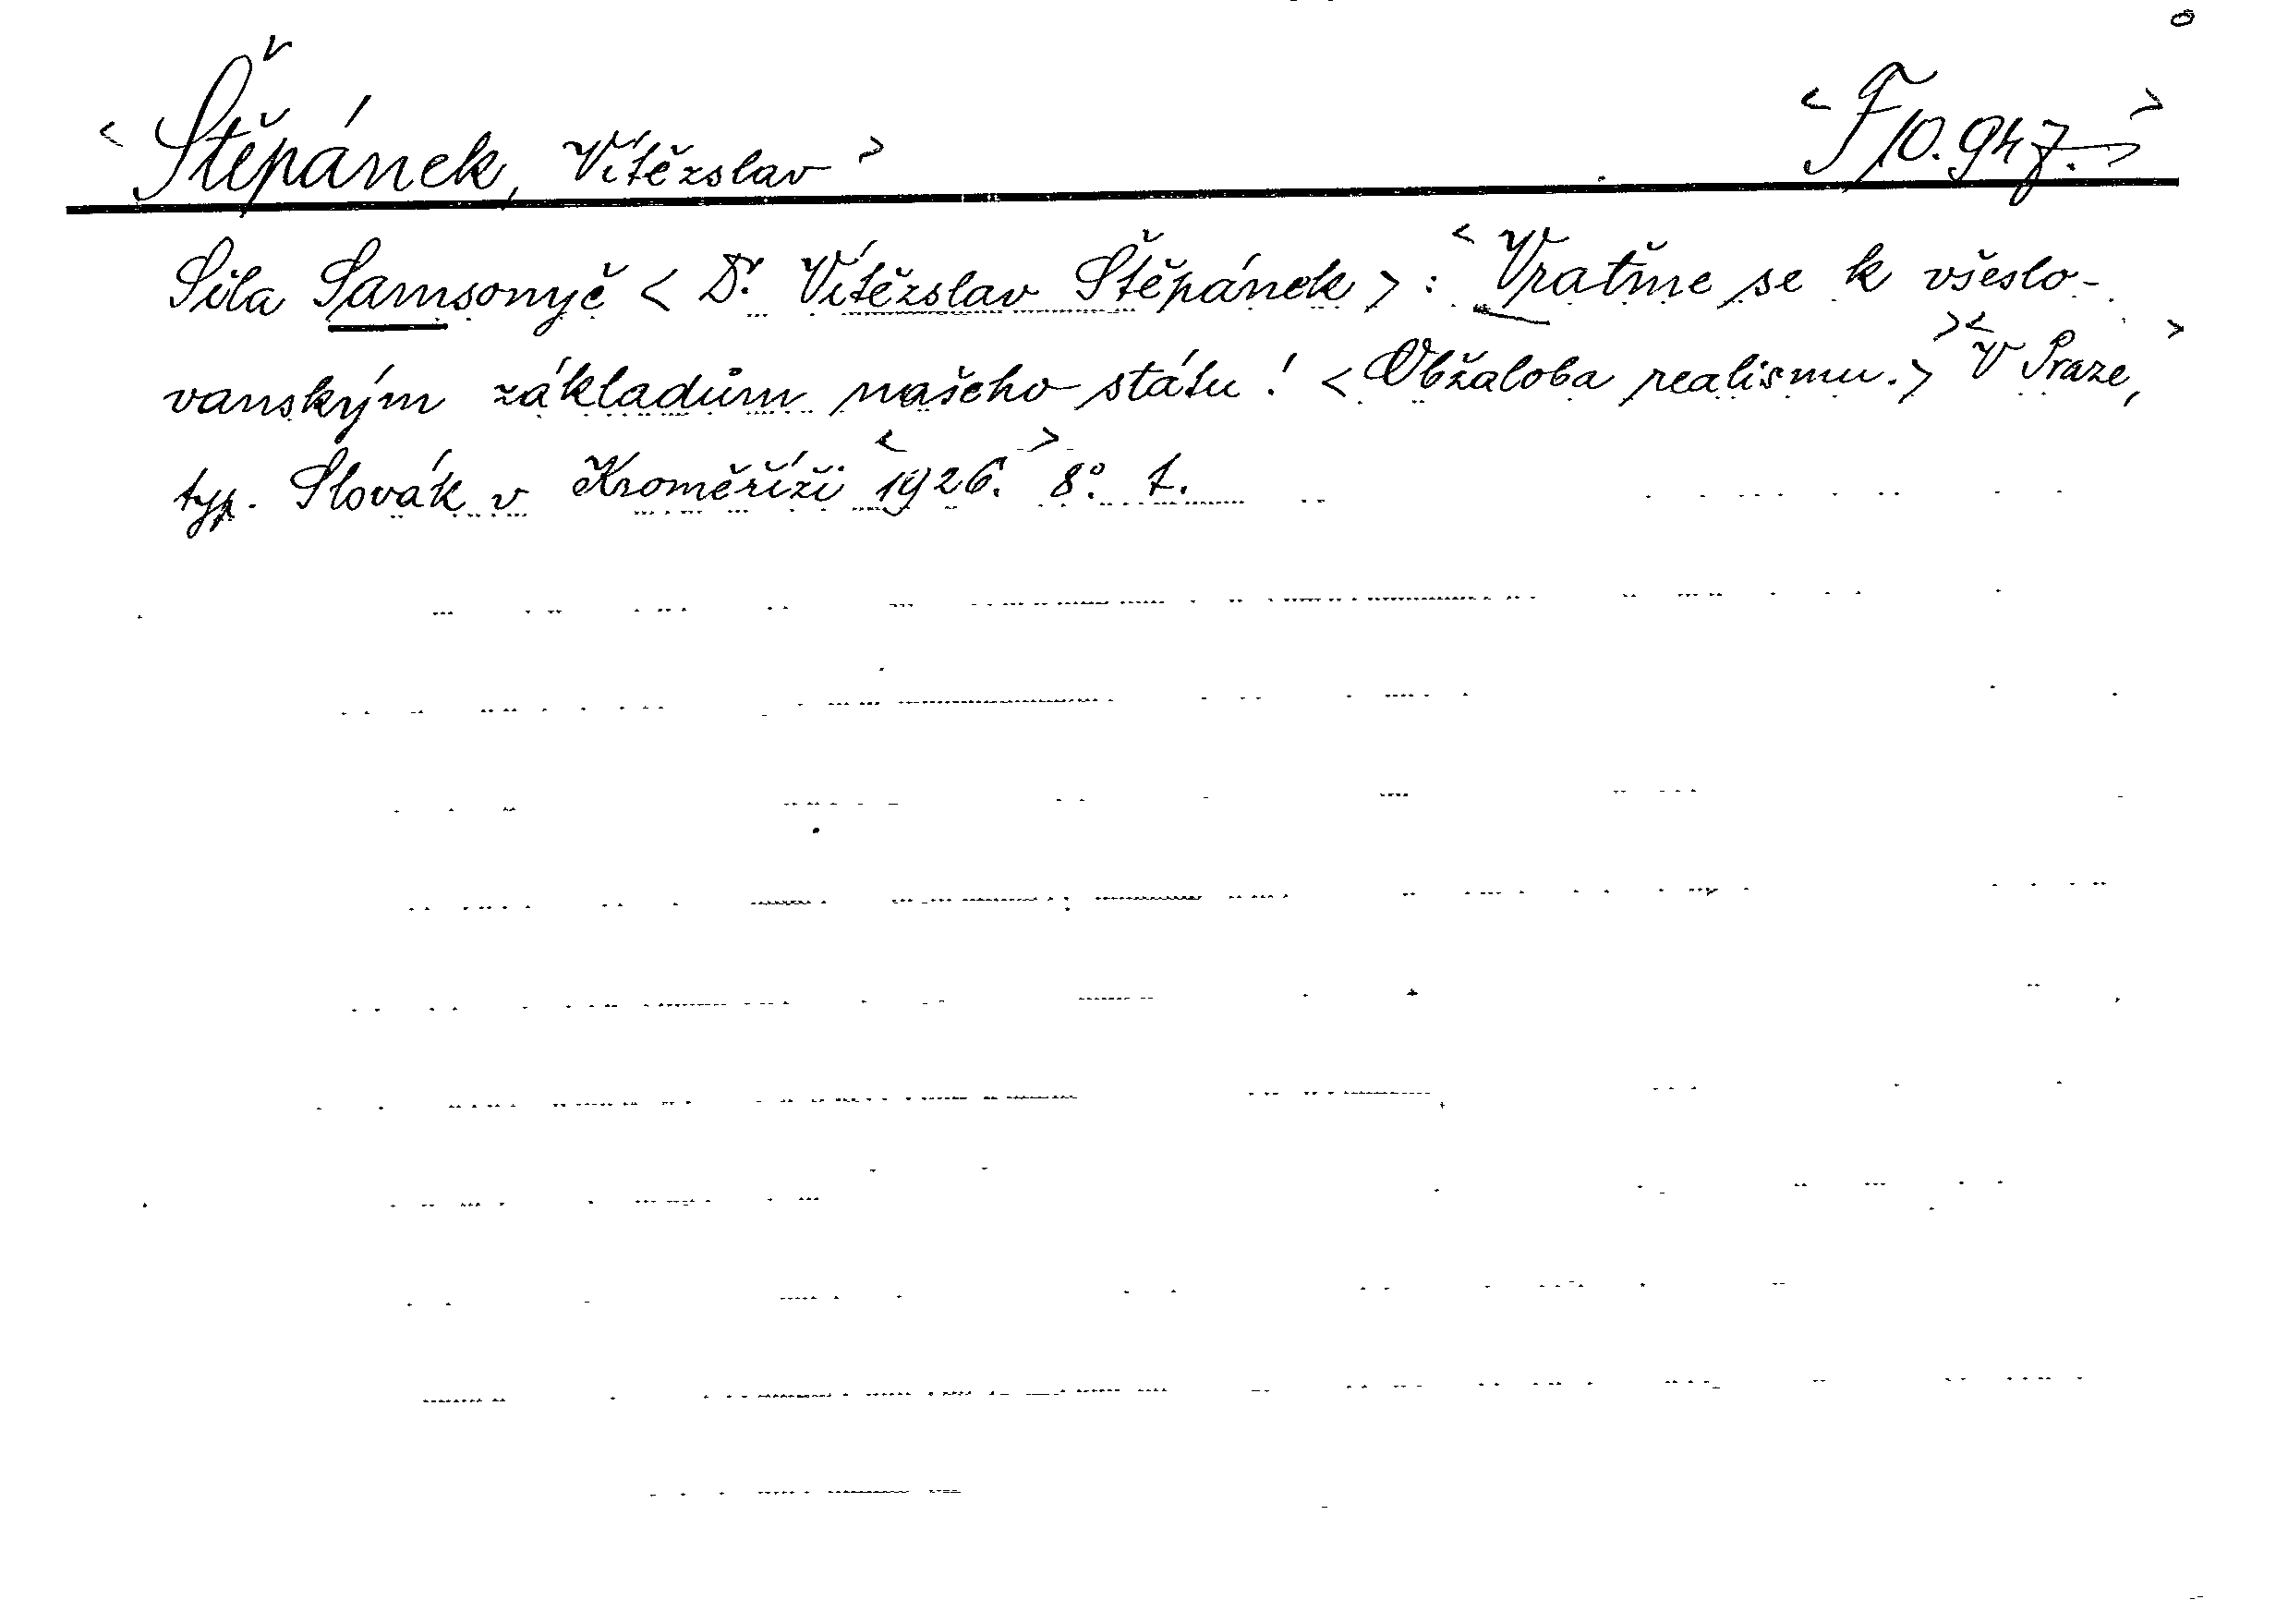 < Štěpánek, Vítězslav > < F 10.947. >
Sila Samsonyč < Dr. Vítězslav Štěpánek > : < Vraťme se k všeslo-
vanským základům našeho státu ! < Obžaloba realismu. > > < V Praze, >
typ. Slovák v Kroměříži < 1926. > 8°. 1.